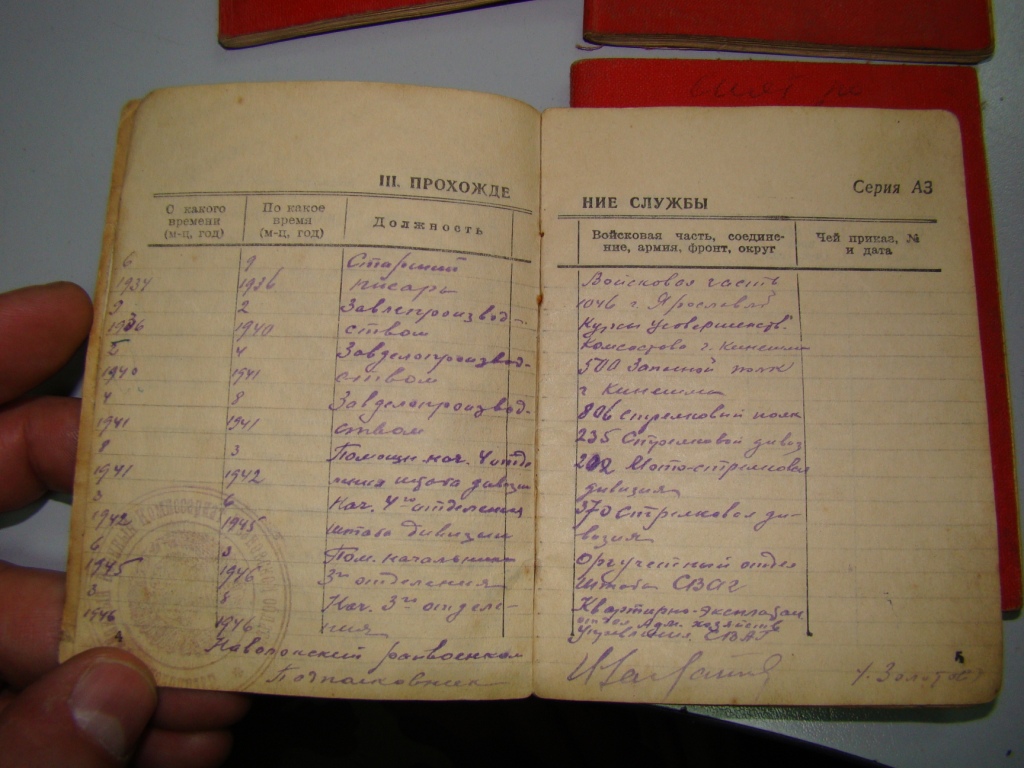 III. ПРОХОЖДЕ
НИЕ СЛУЖБЫ
Серия АЗ
С какого времени (м-ц, год)
По какое время (м-ц, год)
Должность
Войсковая часть, соедине-
ние, армия, фронт, округ
Чей приказ, №
и дата
6 9 Старший Войсковая часть
1934 1936 писарь 1046 г. Ярославль
9 2 Завделопроизвод- Курсы усовершенств.
1936 1940 ством Комсостава г. Кинешма
2 4 Завделопроизвод- 500 Запасной полк
1940 1941 ством г. Кинешма
4 8 Завделопроизвод- 806 Стрелковый полк
1941 1941 ством 235 Стрелковой дивиз
8 3 Помощн. нач. 4 отде 202 Мото-стрелковая
1941 1942 ления штаба дивизии дивизия
3 6 Нач. 4го отделения 370 Стрелковая ди-
1942 1945 штаба дивизии визия
6 3 Пом. начальника Оргучетный отдел
1945 1946 3го отделения Штаба СВАГ
3 8 Нач. 3го отделе- Квартирно-эксплоатац.
1946 1946 ния отдел Адм. хозяйств
Управления СВАГ
Наволокский райвоенком
Подполковник
4
5